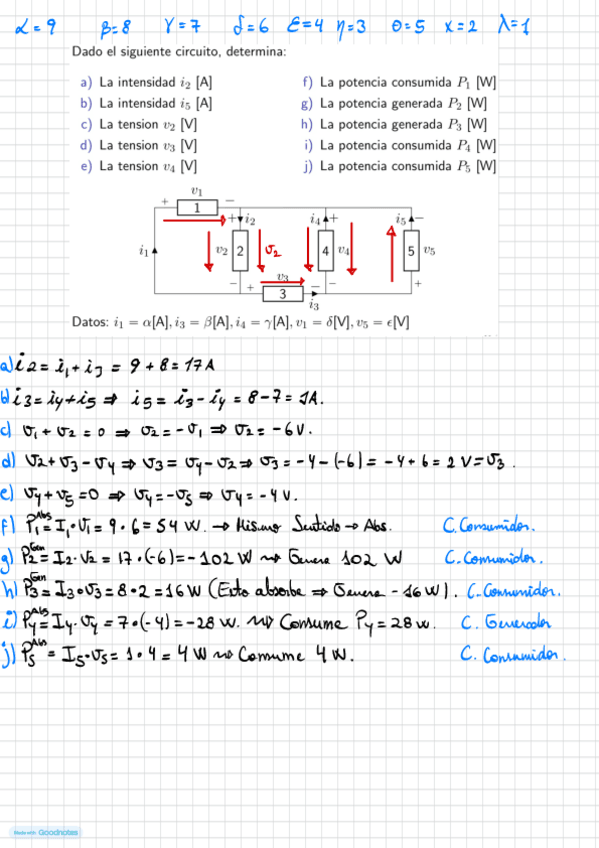 α=9 β=8 γ=7 δ=6 ε=4 η=3 θ=5 x=2 λ=1
Dado el siguiente circuito, determina:
a) La intensidad i₂ [A]
b) La intensidad i₅ [A]
c) La tension v₂ [V]
d) La tension v₃ [V]
e) La tension v₄ [V]
f) La potencia consumida P₁ [W]
g) La potencia generada P₂ [W]
h) La potencia generada P₃ [W]
i) La potencia consumida P₄ [W]
j) La potencia consumida P₅ [W]
v₁
+ 1 −
+ i₂ i₄ + i₅ −
i₁ v₂ 2 v₂ 4 v₄ 5 v₅
− + v₃ − − +
3 i₃
Datos: i₁ = α[A], i₃ = β[A], i₄ = γ[A], v₁ = δ[V], v₅ = ϵ[V]
a) i2 = i₁ + i₃ = 9 + 8 = 17A
b) i3 = i4 + i5 ⇒ i5 = i3 - i4 = 8 - 7 = 1A.
c) v₁ + v₂ = 0 ⇒ v₂ = -v₁ ⇒ v₂ = -6V.
d) v2 + v3 - v4 ⇒ v3 = v4 - v2 ⇒ v3 = -4 - (-6) = -4 + 6 = 2 V = v3.
e) v4 + v5 = 0 ⇒ v4 = -v5 ⇒ v4 = -4 V.
f) P₁ᴬᵇˢ = I₁·v₁ = 9·6 = 54 W. → Mismo Sentido → Abs. C. Consumidor.
g) P₂ᴳᵉⁿ = I₂·v₂ = 17·(-6) = -102 W ⇝ Genera 102 W C. Consumidor.
h) P3ᴳᵉⁿ = I3·v3 = 8·2 = 16 W (Esto absorbe ⇒ Genera -16 W). C. Consumidor.
i) P4ᴬᵇˢ = I4·v4 = 7·(-4) = -28 W. ⇝ Consume P4 = 28 w. C. Generador
j) P5ᴬᵇˢ = I5·v5 = 1·4 = 4 W ⇝ Consume 4 W. C. Consumidor.
Made with Goodnotes